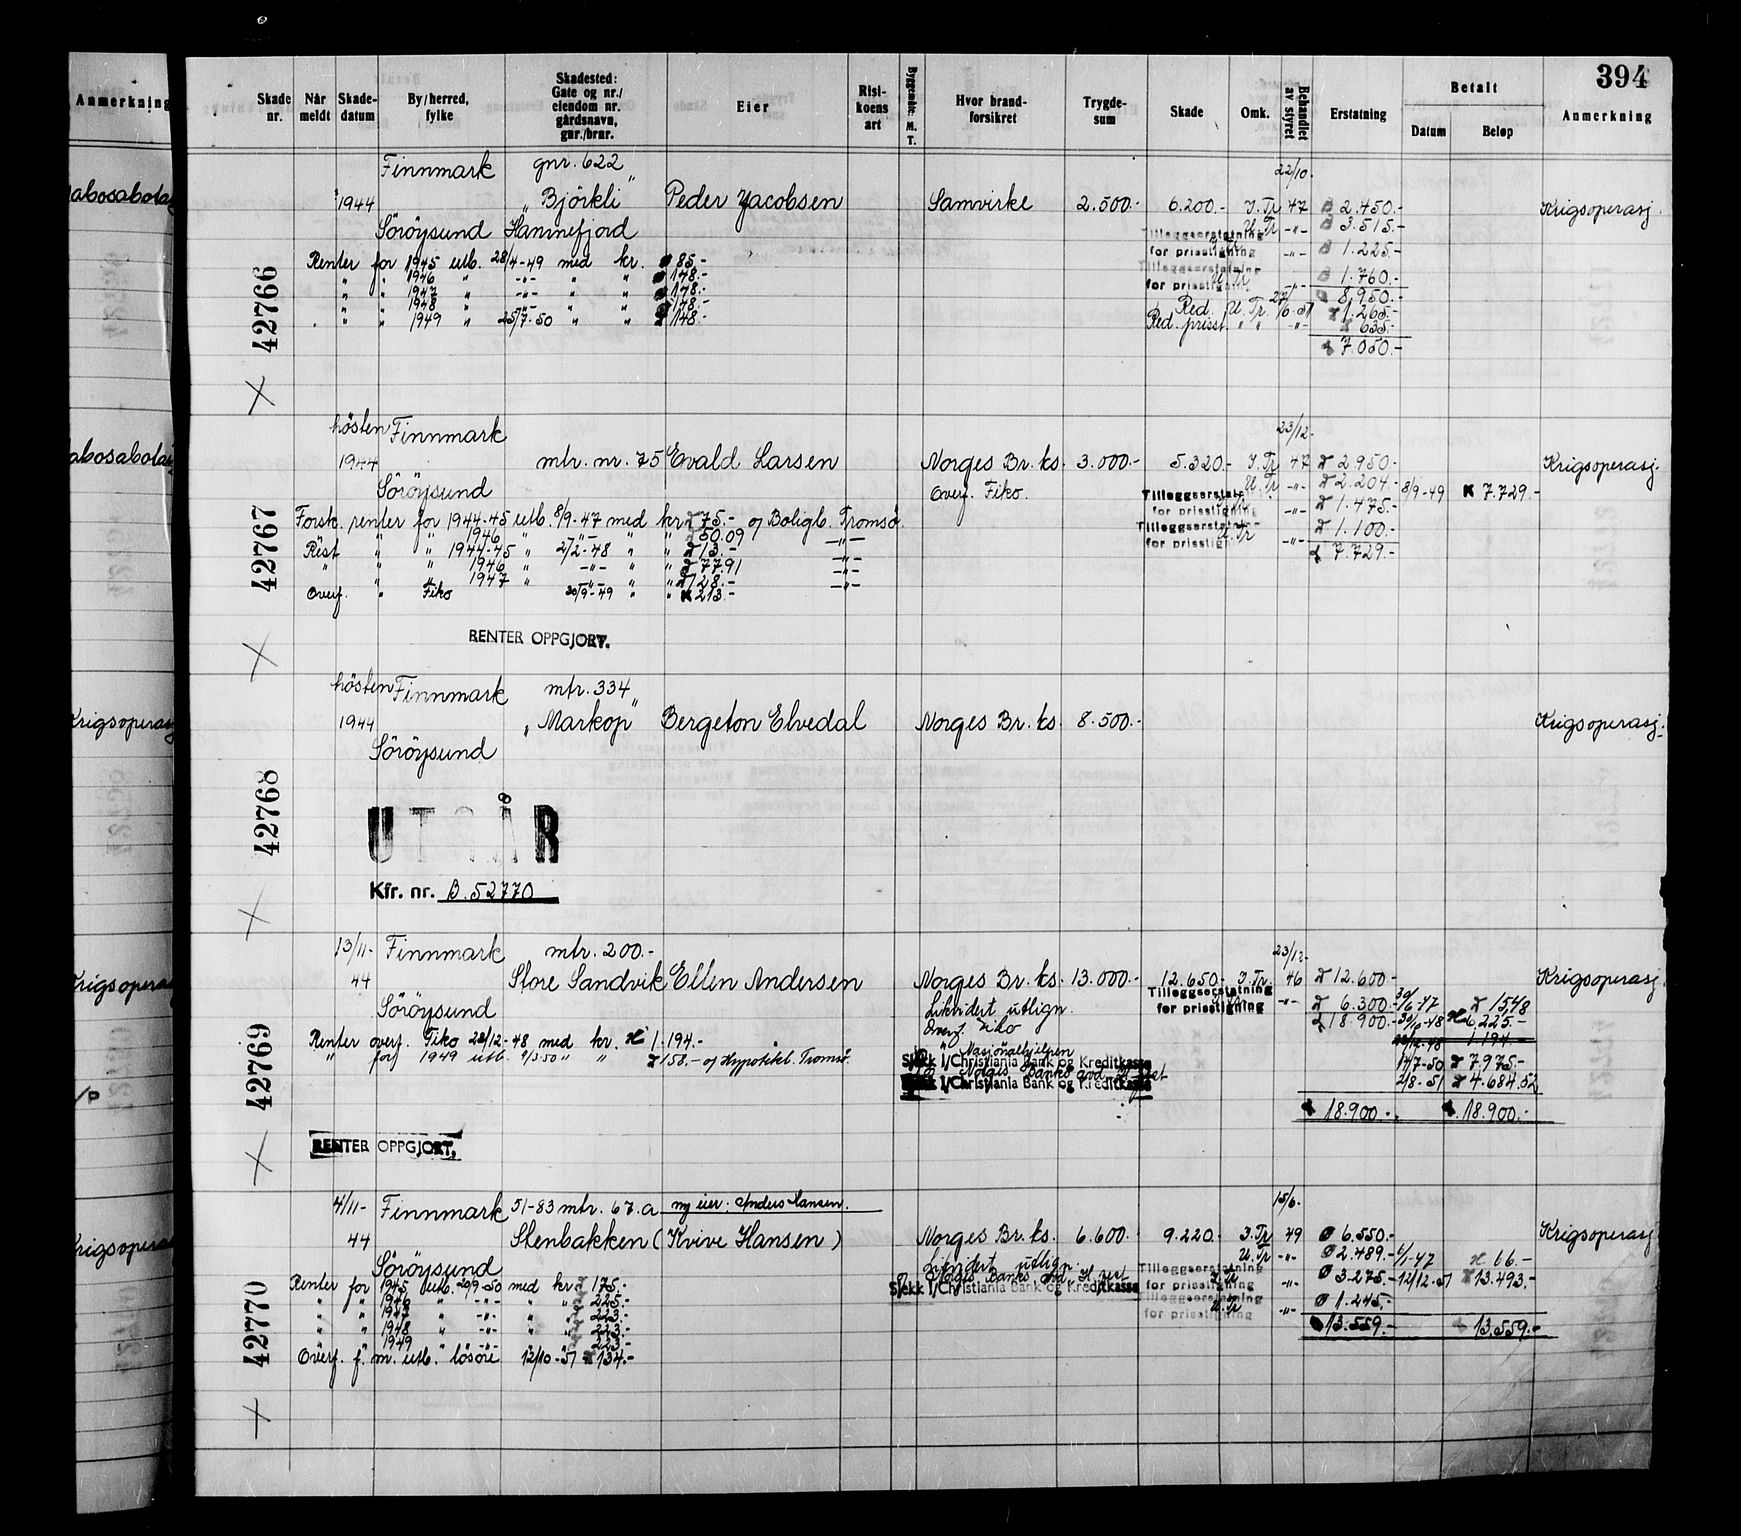 394
Anmerkning
Skade nr.
Når meldt
Skade-datum
By/herred, fylke
Skadested: Gate og nr./ eiendom nr. gårdsnavn, gnr./brnr.
Eier
Risi-koens art
Byggemåte: M. T.
Hvor brand-forsikret
Trygde-sum
Skade
Omk.
Behandlet av styret
Erstatning
Betalt
Datum
Beløp
Anmerkning
abosabotas
abosabotas
Krigsoperasj
Krigsopera
Krigsopera
42766
Finnmark gnr. 622 22/10.
1944 "Björkli" Peder Jacobsen Samvirke 2.500.- 6.200.- I. Tr 47 2.450.- Krigsoperasj.
Söröysund Hannefjord U. Tr -"- 3.515.-
Tilleggserstatning for prisstigning -"- 1.225.-
Renter for 1945 utb. 28/4-49 med kr. 85.-
" " 1946 " -"- " " 148.-
Tilleggserstatning for prisstigning -"- 1.760.-
" " 1947 " -"- " " 148.- 8.950.-
" " 1948 " -"- " " 148.- Red. U. Tr. 27/6-51 1.265.-
" " 1949 " 25/7-50 " " 148.- Red. prisst. " " -"- 635.-
7.050.-
42767
hösten Finnmark 23/12.
1944 mtr. nr. 75 Evald Larsen Norges Br. ks. 3.000.- 5.320.- I. Tr 47 2.950.- Krigsoperasj.
Söröysund Overf. Fiko. U. Tr -"- 2.204.- 8/9-49 K 7.729.-
Tilleggserstatning for prisstigning -"- 1.475.-
Forsk. renter for 1944-45 utb. 8/9-47 med kr 75.- og Boligb. Tromsö.
" " 1946 " -"- " " 50.09 -"-
Tilleggserstatning for prisstigning U. Tr -"- 1.100.-
Rest " " 1944-45 " 2/2-48 " " 13.- -"- 7.729.-
" " " 1946 " -"- " " 77.91 -"-
" " 1947 " -"- " " 128.- -"-
Overf. " Fiko 30/9-49 " " K 213.-
RENTER OPPGJORT.
42768
hösten Finnmark mtr. 334
1944 "Markop" Bergeton Elvedal Norges Br. ks. 8.500.- Krigsoperasj.
Söröysund
UTGÅR
Kfr. nr. B. 52770
42769
13/11- Finnmark mtr. 200.- 23/12-
44 Store Sandvik Ellen Andersen Norges Br. ks. 13.000.- 12.650.- I. Tr. 46 12.600.- Krigsoperasj.
Söröysund Likvidert utlign. Tilleggserstatning for prisstigning -"- 6.300.- 30/6-47 1548
Overf. Fiko 18.900.- 30/10-48 6.225.-
Renter overf. Fiko 28/12-48 med kr. 1.194.- 28/12-48 1194.-
" Nasjonalhjelpen
" for 1949 utb. 9/3-50 " " 158.- og Hypotekb. Tromsö.
Sjekk 1/Christiania Bank og Kreditkasse 17/7-50 7.975.-
Norges Banks avd. H.fest
Sjekk 1/Christiania Bank og Kreditkasse 2/8-51 4.684.52
18.900.- 18.900.-
RENTER OPPGJORT.
42770
4/11- Finnmark 51-83 mtr. 67.a ny eier: Anders Hansen. 15/6.
44 Stenbakken (Kvive Hansen) Norges Br. ks. 6.600.- 9.220.- I. Tr 49 6.550.- Krigsoperasj
Söröysund Likvidert utlign. U. Tr -"- 2.489.- 6/1-47 66.-
Norges Banks avd. H.fest
Renter for 1945 utb. 20/9-50 med kr 175.-
Sjekk 1/Christiania Bank og Kreditkasse Tilleggserstatning for prisstigning -"- 3.275.- 12/12-51 13.493.-
" " 1946 " -"- " " 225.-
" " 1947 " -"- " " 223.-
Tilleggserstatning for prisstigning U. Tr -"- 1.245.-
" " 1948 " -"- " " 223.- 13.559.- 13.559.-
" " 1949 " -"- " " 223.-
Overf. f. m. utb. lösöre 12/10-51 134.-